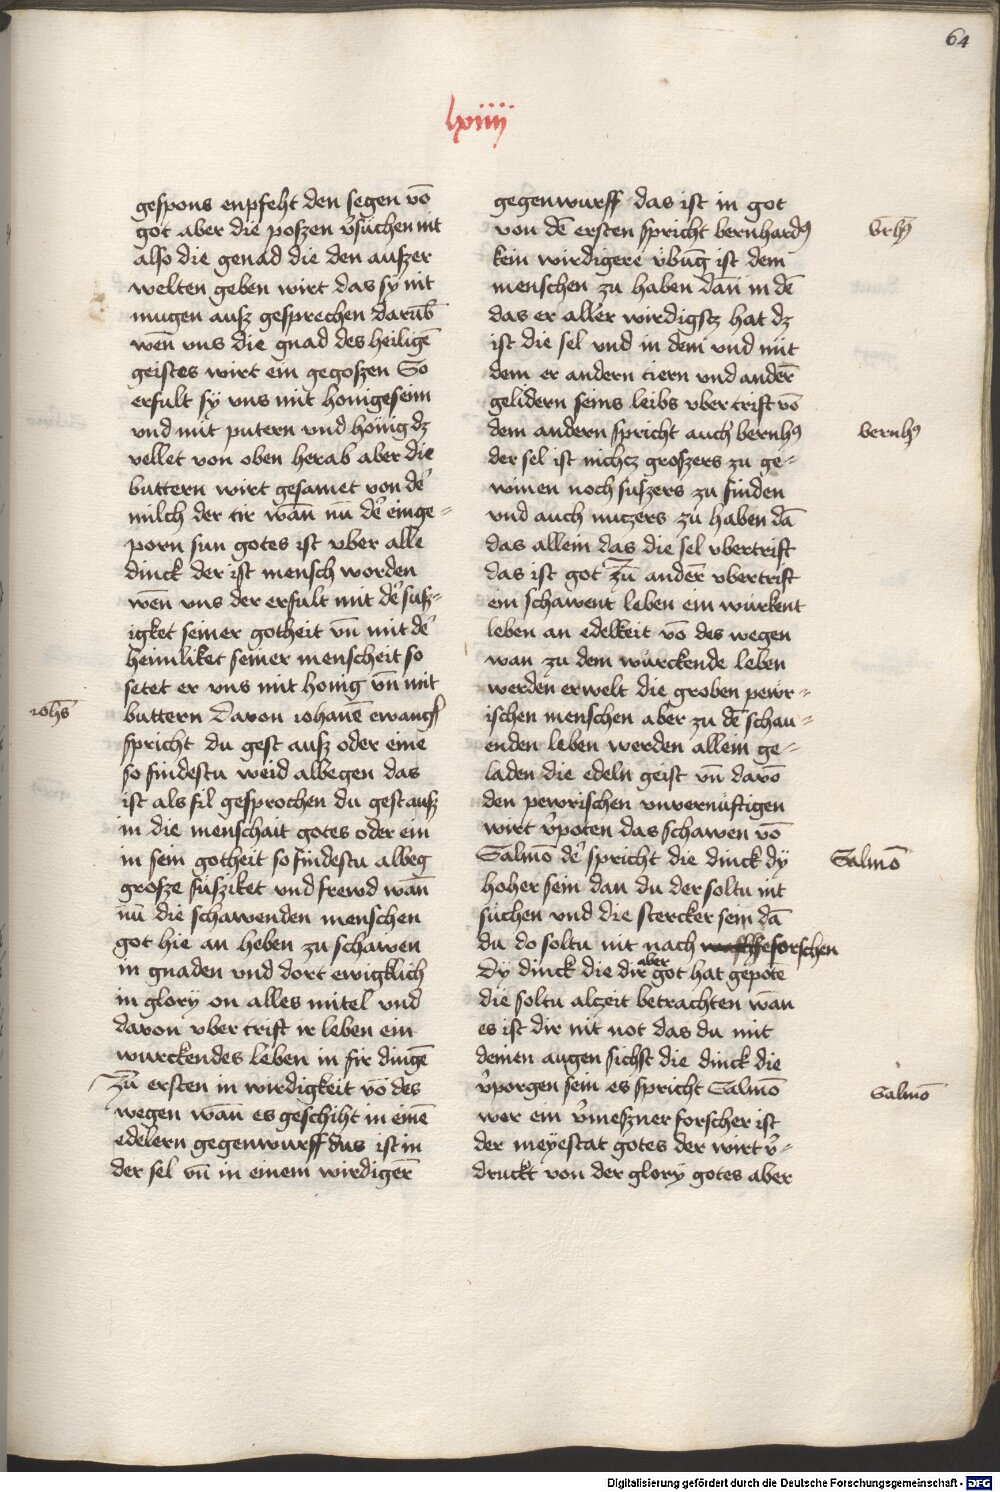 64
lxiiii
gespons enpfeht den segen vō
got aber die poszen v̄suchen nit
also die genad die den auszer
welten geben wirt das sÿ nit
mugen ausz gesprechen darūb
wen̄ vns die gnad des heiligē
geistes wirt ein gegoszen So
erfult sÿ vns mit honigeseim
vnd mit putern vnd hönig dz
vellet von oben herab aber die
buttern wirt gesamet von d̄e
milch der tir wān nū d̄e einge-
porn sun gotes ist vber alle
dinck der ist mensch worden
wen̄ vns der erfult mit d̄e susz-
igket seiner gotheit vn̄ mit d̄e
heimliket seiner menscheit so
setet er vns mit honig vn̄ mit
iohēs
buttern Davon iohanē ewangᷣ
spricht du gest ausz oder eine
so findestu weid albegen das
ist als fil gesprochen du gest ausz
in die menschait gotes oder ein
in sein gotheit so findestu albeg
grosze sÿsziket vnd frewd wān
nū die schawenden menschen
got hie an heben zu schawen
in gnaden vnd dort ewigklich
in glorÿ on alles mitel vnd
davon vber trift ir leben ein
wurckendes leben in fir dingē
zū ersten in wirdigkeit vō des
wegen wān es geschiht in einē
edelern gegenwurff das ist in
der sel vn̄ in einem wirdigerē
gegenwurff das ist in got
von dē ersten spricht bernhardꝰ
b̄rhꝰ
kein wirdigere vbūg ist dem
menschen zu haben dān in dē
das er aller wirdigstz hat dz
ist die sel vnd in dem vnd mit
dem er andern tiern vnd anderē
gelidern seins leibs vber trift vō
dem andern spricht auch bernhꝰ
bernhꝰ
der sel ist nichcz groszers zu ge-
winen noch suszers zu finden
vnd auch nuczers zu haben dā
das allein das die sel vbertrift
das ist got zū anderē vbertrift
ein schawent leben ein würkent
leben an edelkeit vō des wegen
wan zu dem würckende leben
werden erwelt die groben pewr-
ischen menschen aber zu dē schau-
enden leben werden allein ge-
laden die edeln geist vn̄ davō
den pewrischen vnvernuftigen
wirt v̄poten das schawen vō
Salmō d̄e spricht die dinck dÿ
Salmō
hoher sein dan du der soltu nit
suchen vnd die stercker sein dā
du do soltu nit nach forschen
Dÿ dinck die dir aber got hat gepote
die soltu alczeit betrachten wān
es ist dir nit not das du mit
deinen augen sichst die dinck die
v̄porgen sein es spricht Salmō
Salmō
wer ein v̄meszner forscher ist
der meyestat gotes der wirt v̄-
druckt von der glorÿ gotes aber
Digitalisierung gefördert durch die Deutsche Forschungsgemeinschaft - DFG